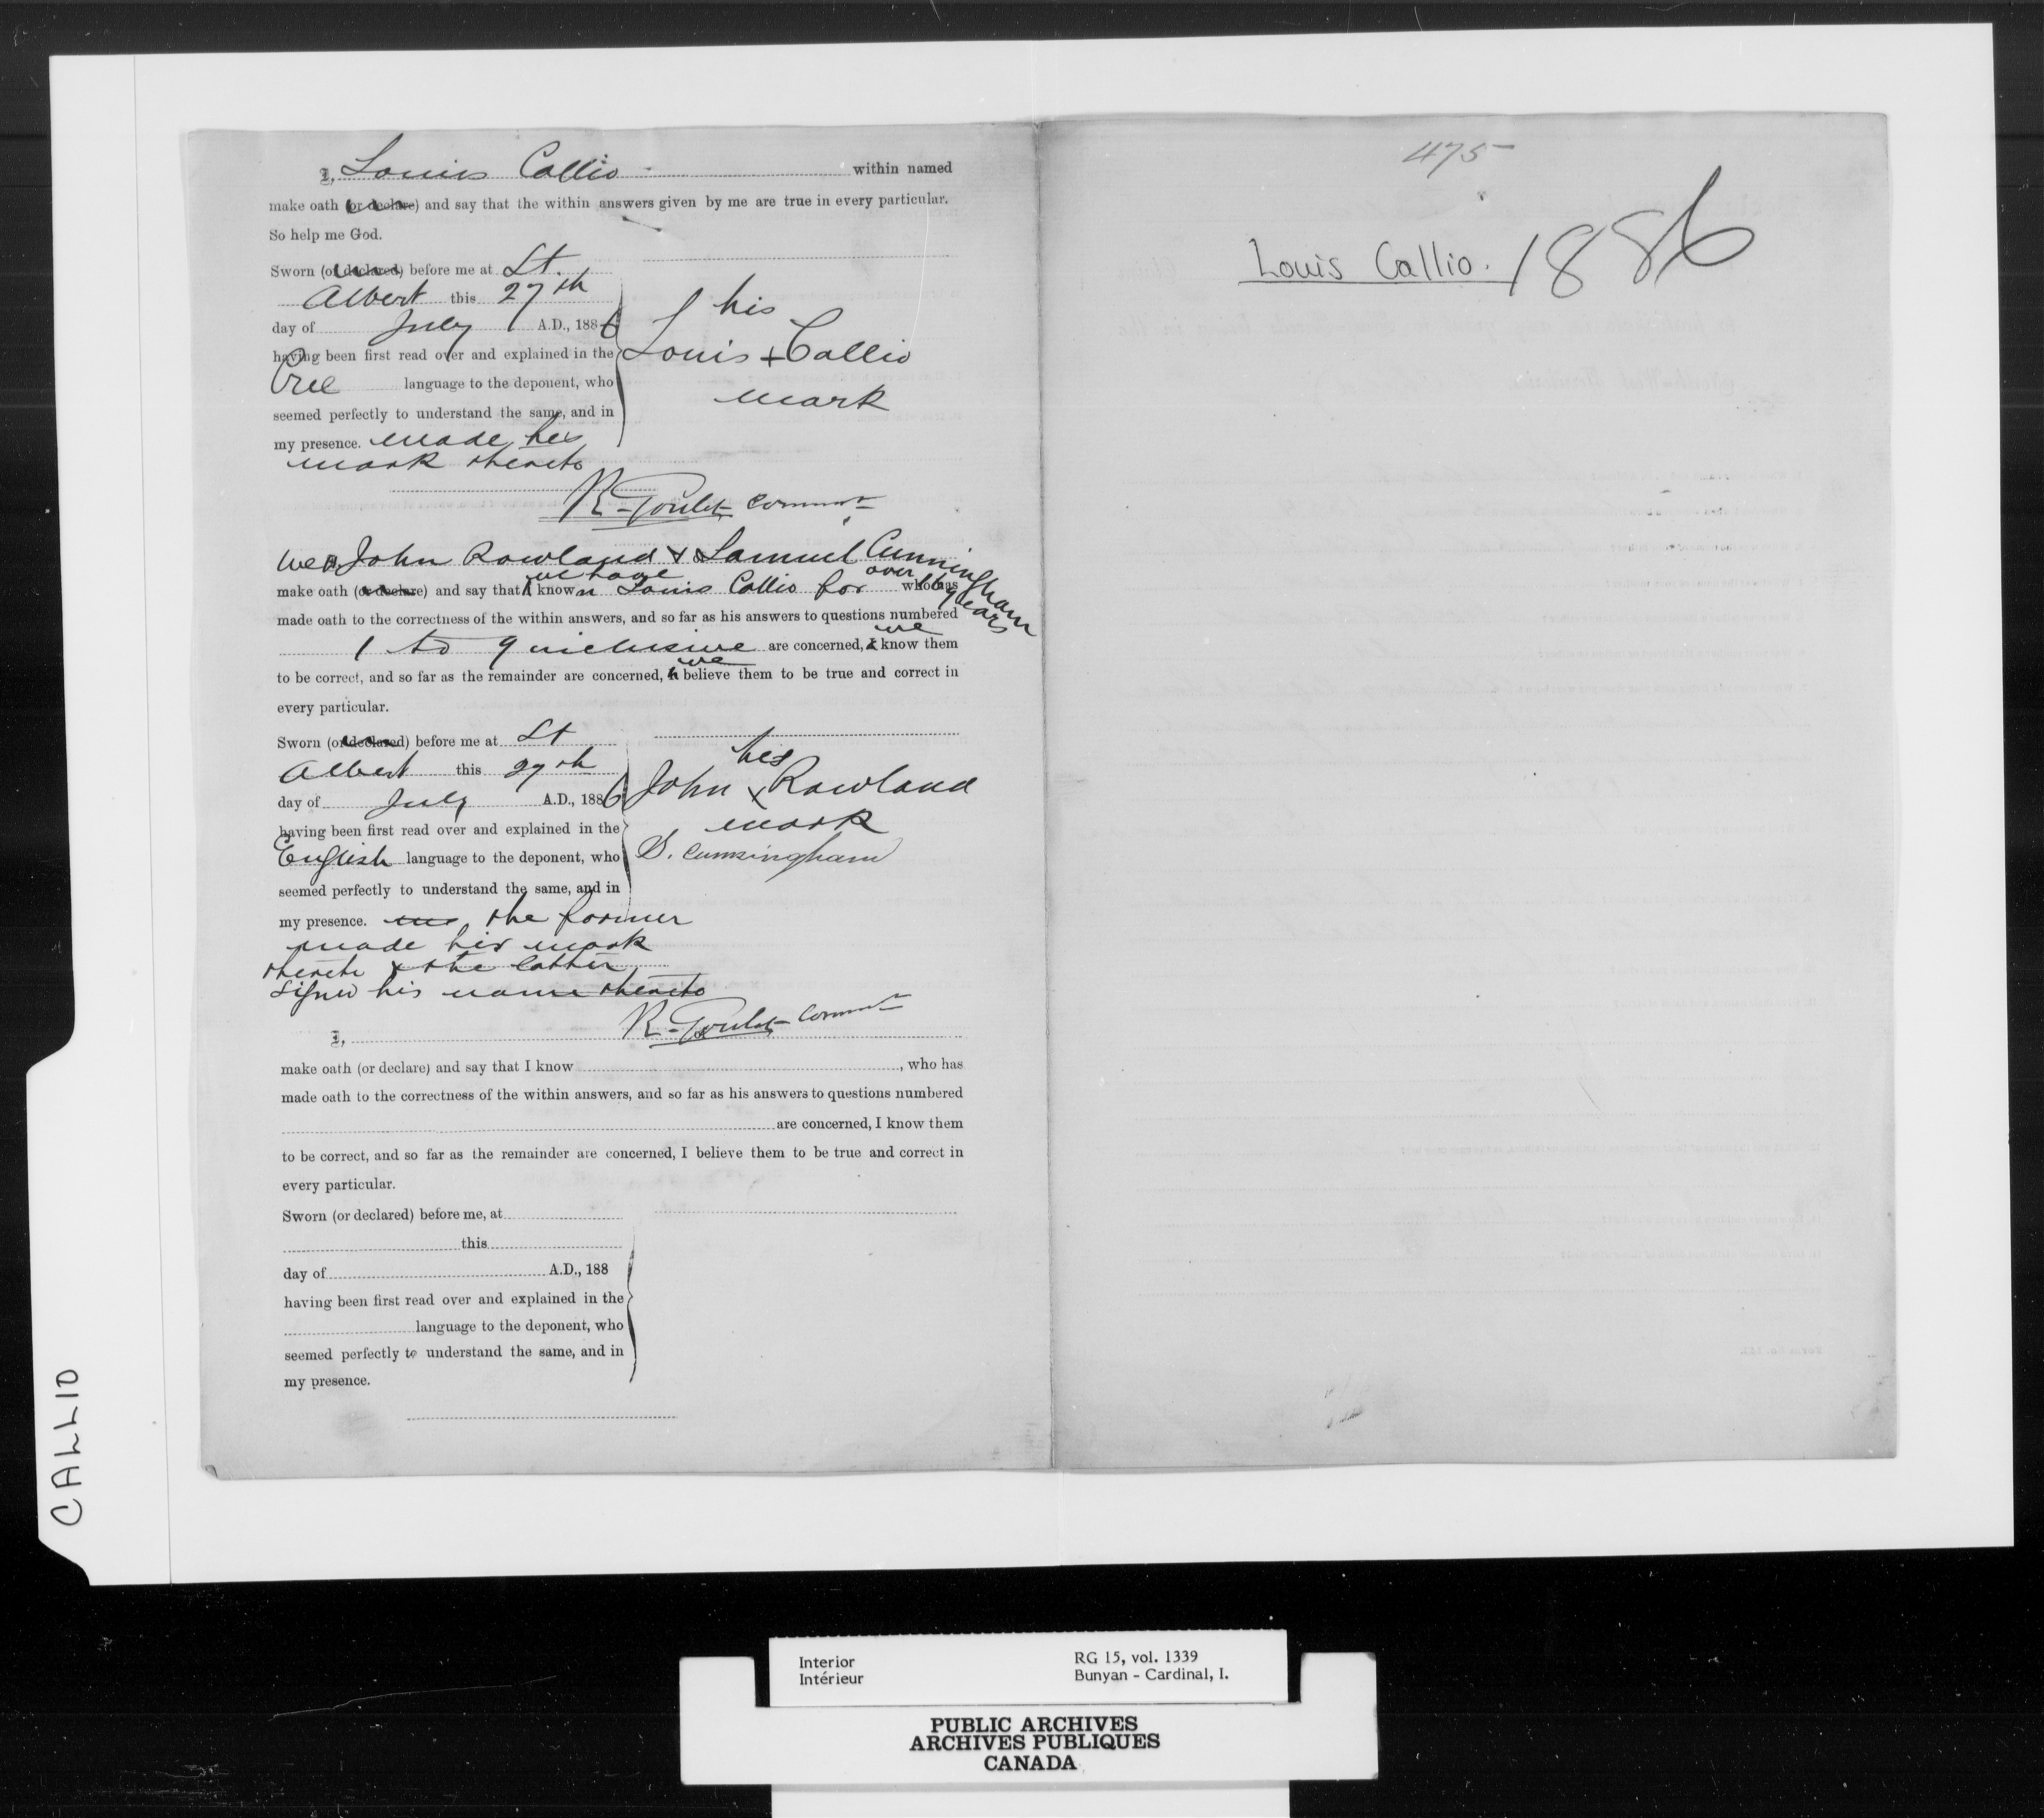 I, Louis Callio within named
make oath (or declare) and say that the within answers given by me are true in every particular.
So help me God.
Sworn (or declared) before me at St.
Albert this 27th
day of July A.D., 1886
having been first read over and explained in the
Cree language to the deponent, who
seemed perfectly to understand the same, and in
my presence. made his
mark thereto
his
Louis + Callio
mark
R. Goulet Commr
We, John Rowland & Samuel Cunningham
make oath (or declare) and say that we have known Louis Callio for over 16 years who has
made oath to the correctness of the within answers, and so far as his answers to questions numbered
1 to 9 inclusive are concerned, we know them
to be correct, and so far as the remainder are concerned, we believe them to be true and correct in
every particular.
Sworn (or declared) before me at St
Albert this 27th
day of July A.D., 1886
having been first read over and explained in the
English language to the deponent, who
seemed perfectly to understand the same, and in
my presence. the former
made his mark
thereto & the latter
signed his name thereto
his
John x Rowland
mark
S. Cunningham
R. Goulet Commr
I,
make oath (or declare) and say that I know , who has
made oath to the correctness of the within answers, and so far as his answers to questions numbered
are concerned, I know them
to be correct, and so far as the remainder are concerned, I believe them to be true and correct in
every particular.
Sworn (or declared) before me, at
this
day of A.D., 188
having been first read over and explained in the
language to the deponent, who
seemed perfectly to understand the same, and in
my presence.
475
Louis Callio. 1886
CALLIO
Interior RG 15, vol. 1339
Intérieur Bunyan - Cardinal, I.
PUBLIC ARCHIVES
ARCHIVES PUBLIQUES
CANADA